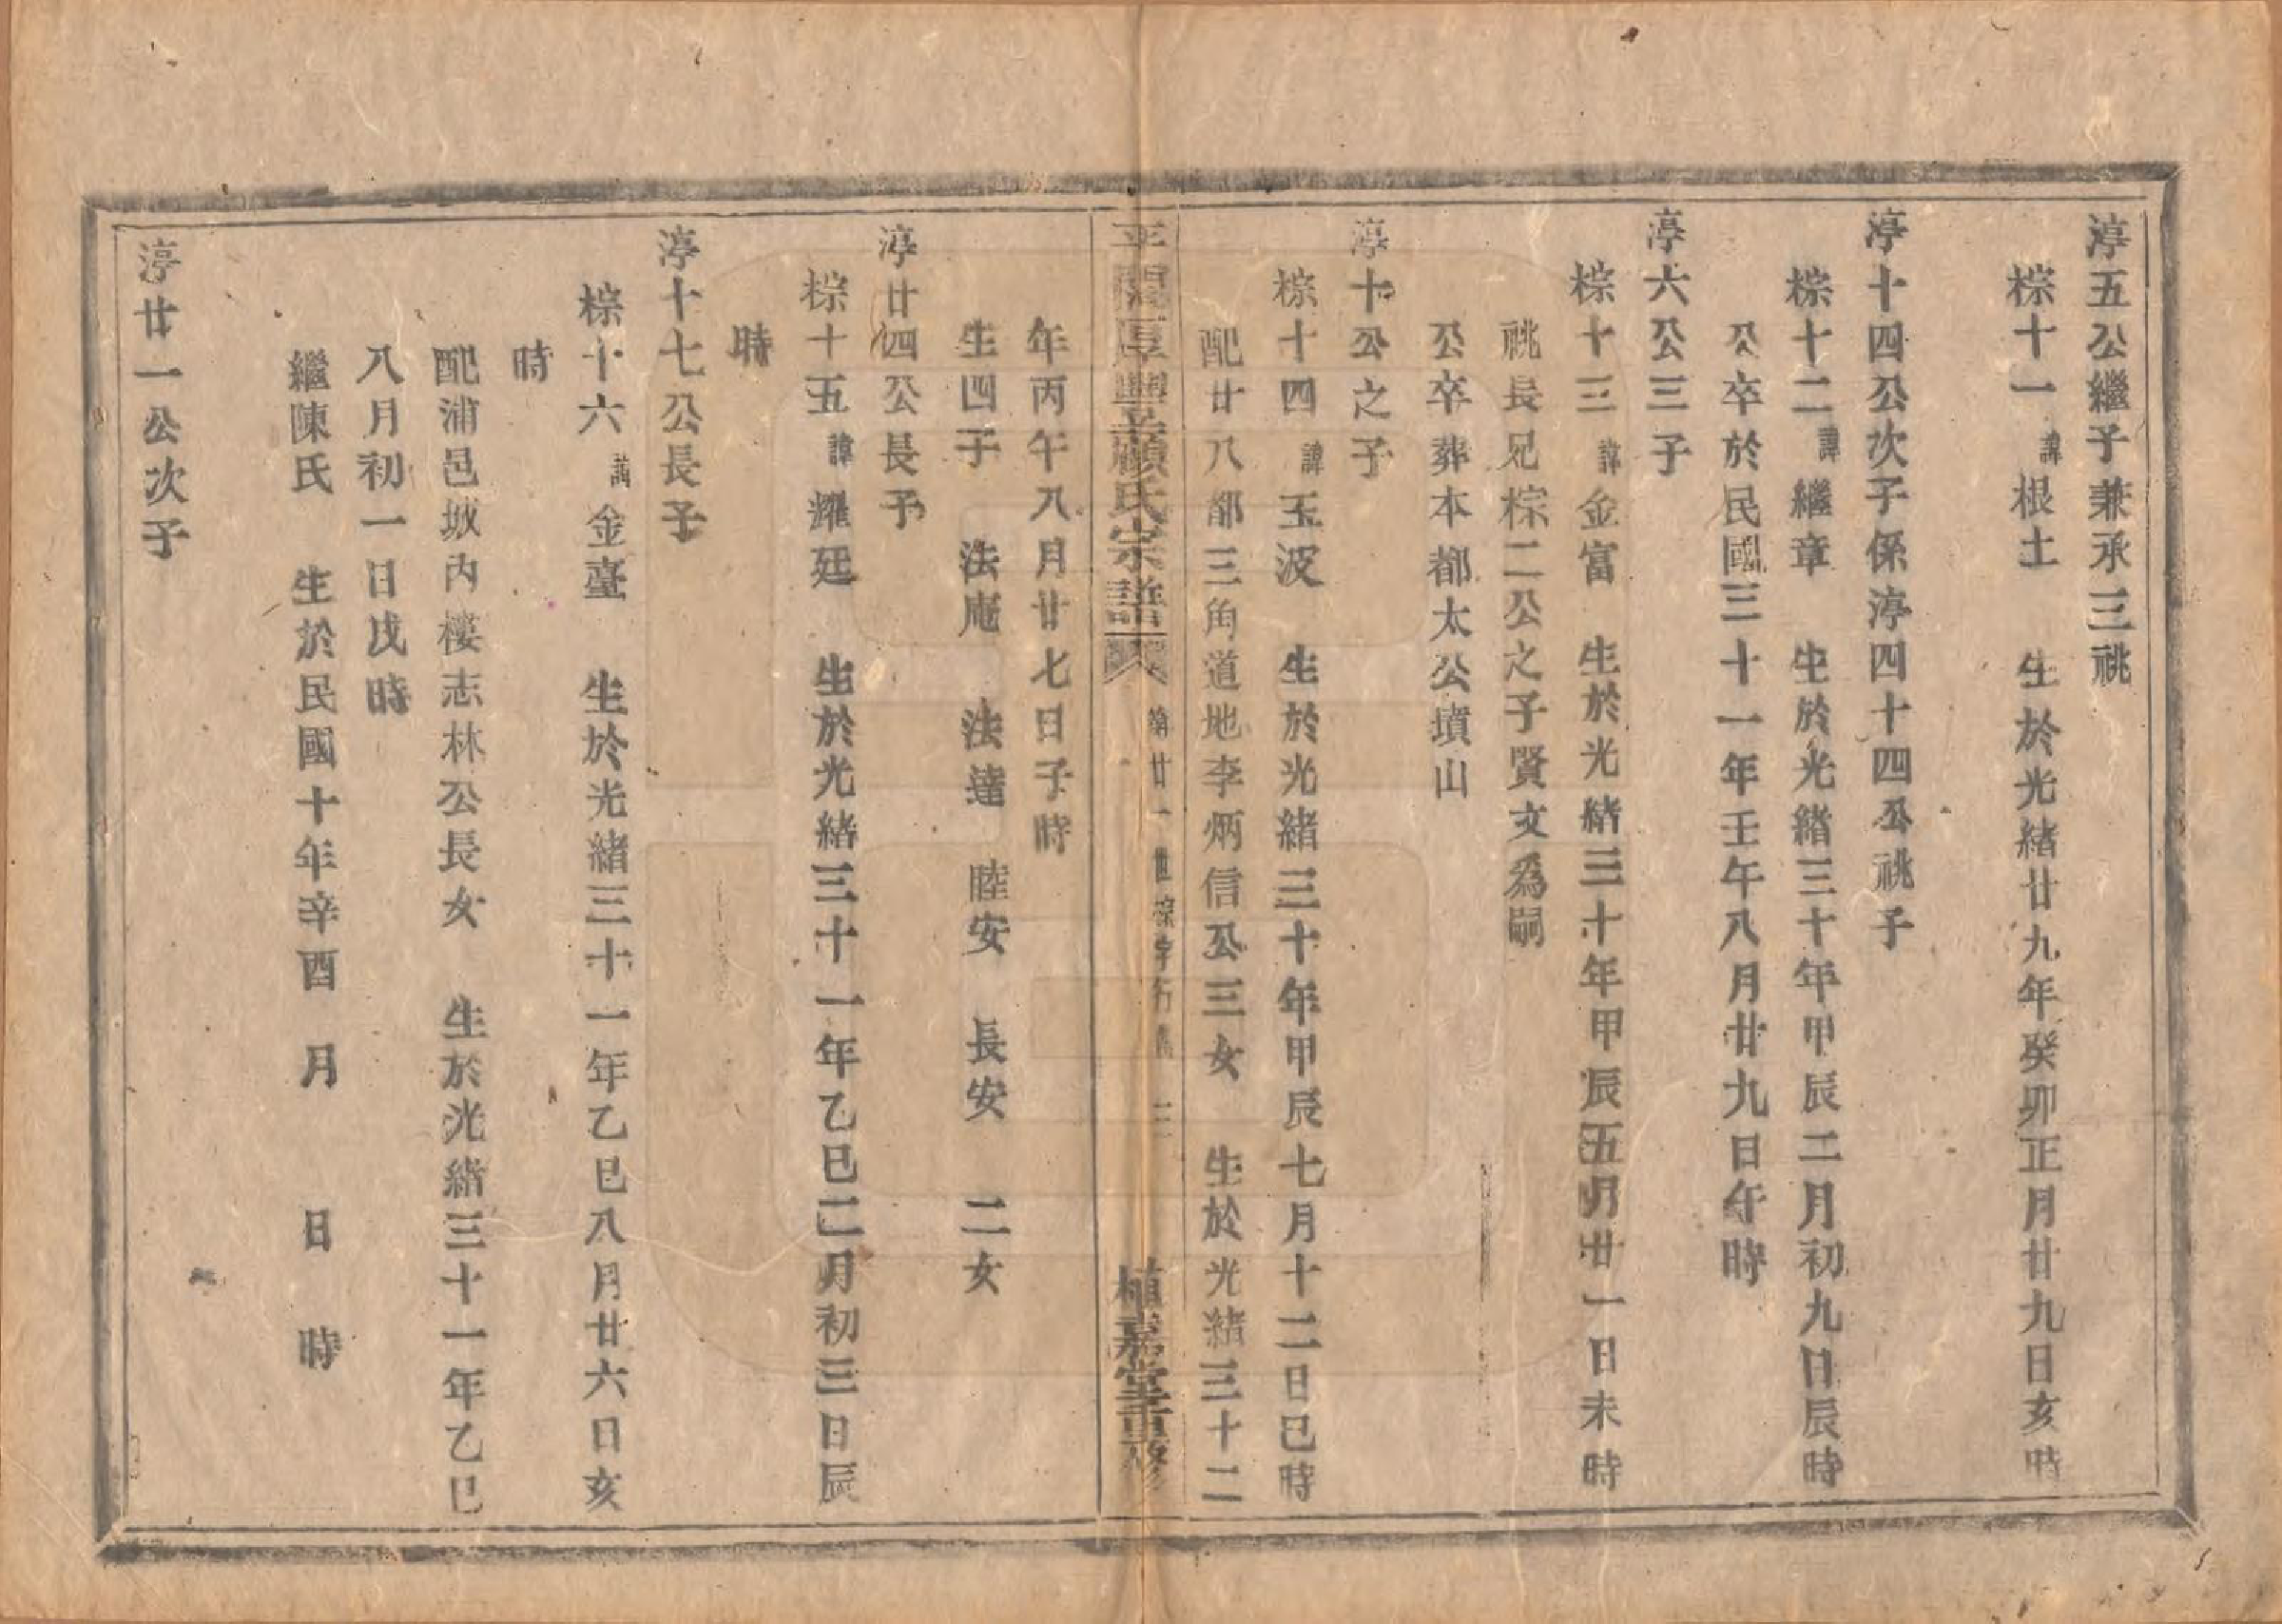 淳五公繼子兼承三祧
棕十一 諱根土 生於光緒廿九年癸卯正月廿九日亥時
淳十四公次子係淳四十四公祧子
棕十二 諱繼章 生於光緒三十年甲辰二月初九日辰時
公卒於民國三十一年壬午八月廿九日午時
淳六公三子
棕十三 諱金富 生於光緒三十年甲辰五月廿一日未時
祧長兄棕二公之子賢文爲嗣
公卒葬本都太公墳山
淳十公之子
棕十四 諱玉波 生於光緒三十年甲辰七月十二日巳時
配廿八都三角道地李炳信公三女 生於光緒三十二
平闊厚豐辛顧氏宗譜 廿一世棕字行傳 三 植嘉堂重修
年丙午八月廿七日子時
生四子 法庵 法達 睦安 長安 二女
淳廿四公長子
棕十五 諱耀廷 生於光緒三十一年乙巳二月初三日辰
時
淳十七公長子
棕十六 諱金臺 生於光緒三十一年乙巳八月廿六日亥
時
配浦邑城內樓志林公長女 生於光緒三十一年乙巳
八月初一日戌時
繼陳氏 生於民國十年辛酉 月 日 時
淳廿一公次子